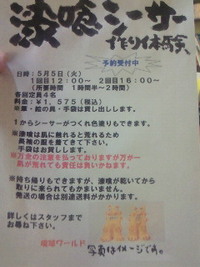 漆喰シーサー
作り体験
予約受付中
日時：5月5日（火）
1回目12：00～ 2回目16：00～
（所要時間 1時間半～2時間）
各回定員4名
料金：¥1,575（税込）
※筆・絵の具・手袋は貸し出します。
1からシーサーがつくれ色塗りもできます。
※漆喰は肌に触れると荒れるため
長袖の服を着てきて下さい。
手袋はお貸しします。
※万全の注意を払っておりますが万が一
肌が荒れても責任は負いかねます。
※持ち帰りもできますが、漆喰が乾いてから
取りに来られてもかまいません。
発送の場合は別途送料がかかります。
詳しくはスタッフまで
お尋ね下さい。
琉球ワールド
写真はイメージです。